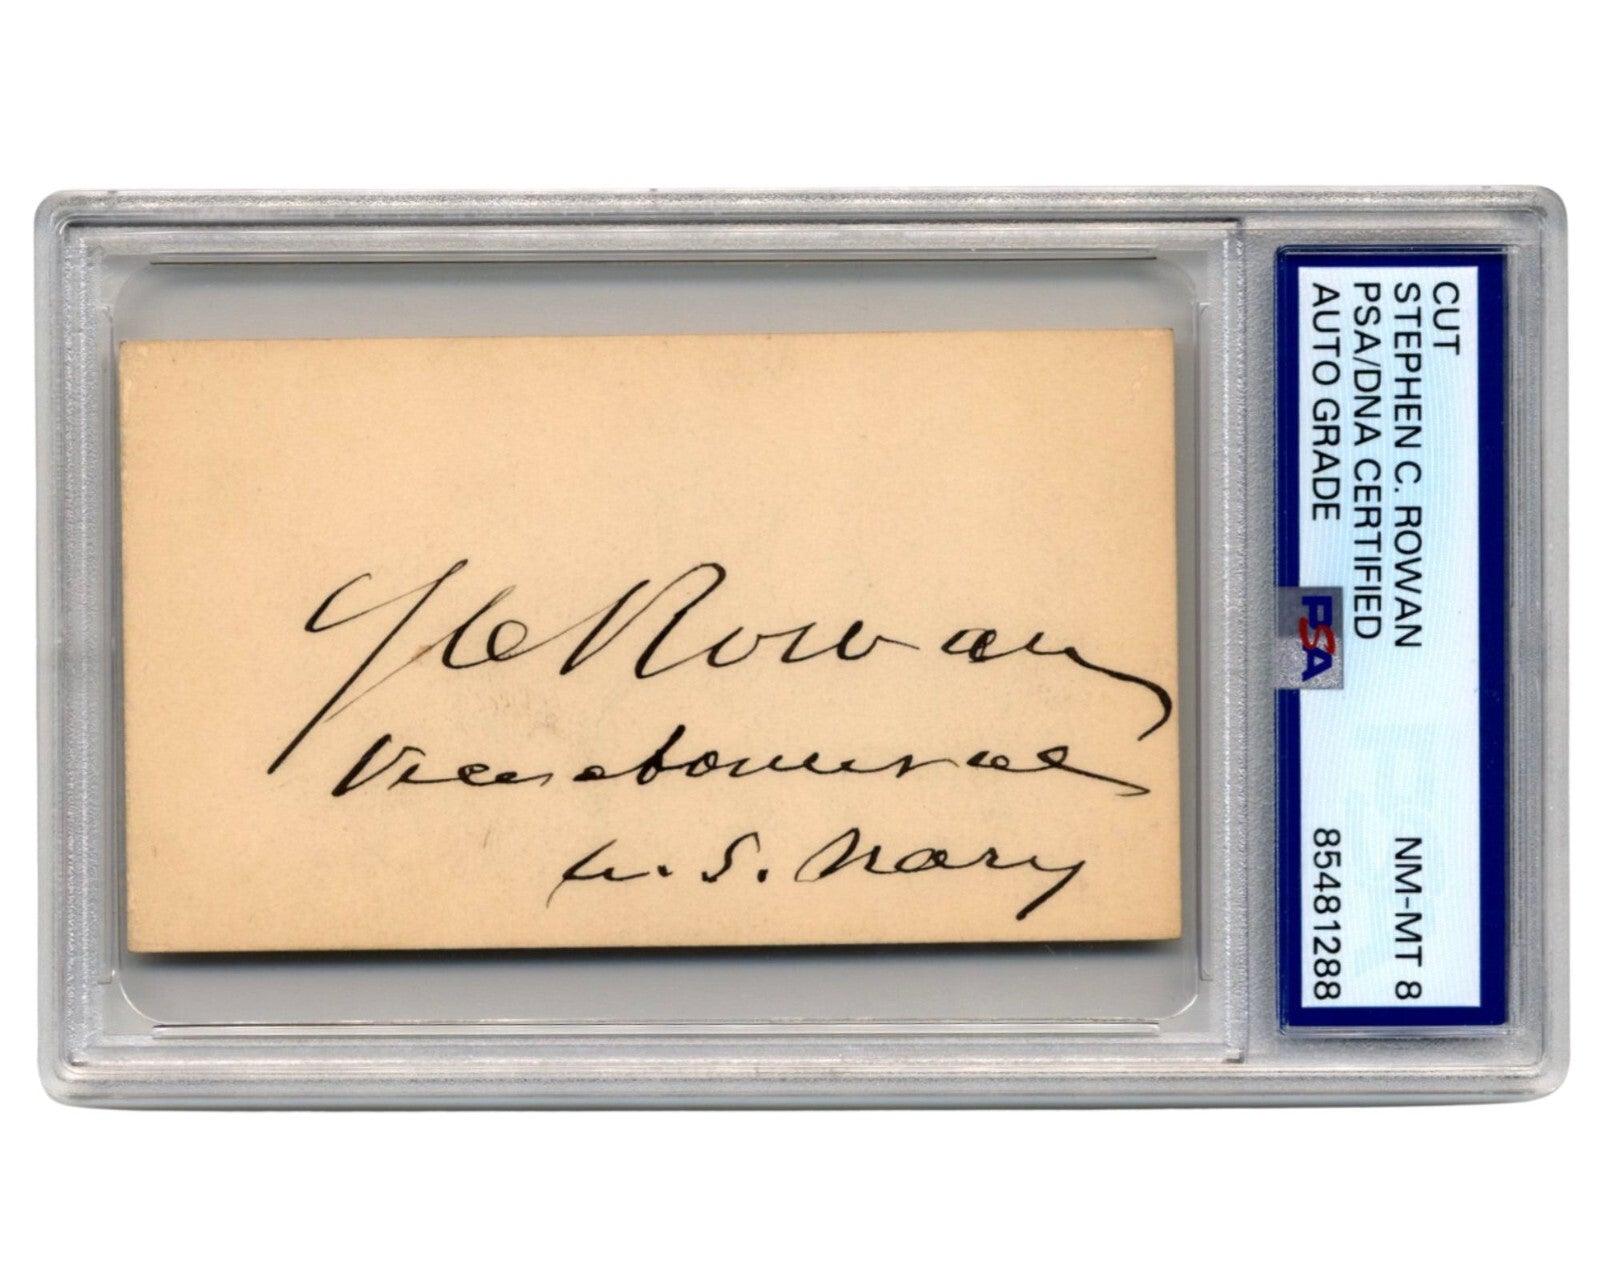 SC Rowan
Vice Admiral
U.S. Navy
CUT
STEPHEN C. ROWAN NM-MT 8
PSA/DNA CERTIFIED
AUTO GRADE 85481288
PSA